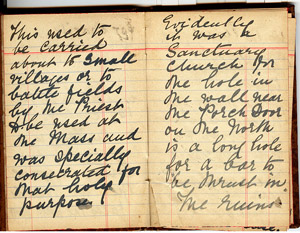 This used to
be carried
about to small
villages or to
battle fields
by the Priest
to be used at
the Mass and
was specially
consecrated for
that holy
purpose
Evidently
it was a
Sanctuary
Church for
the hole in
the wall near
the Porch Door
on the North
is a long hole
for a bar to
be thrust in.
The ruins